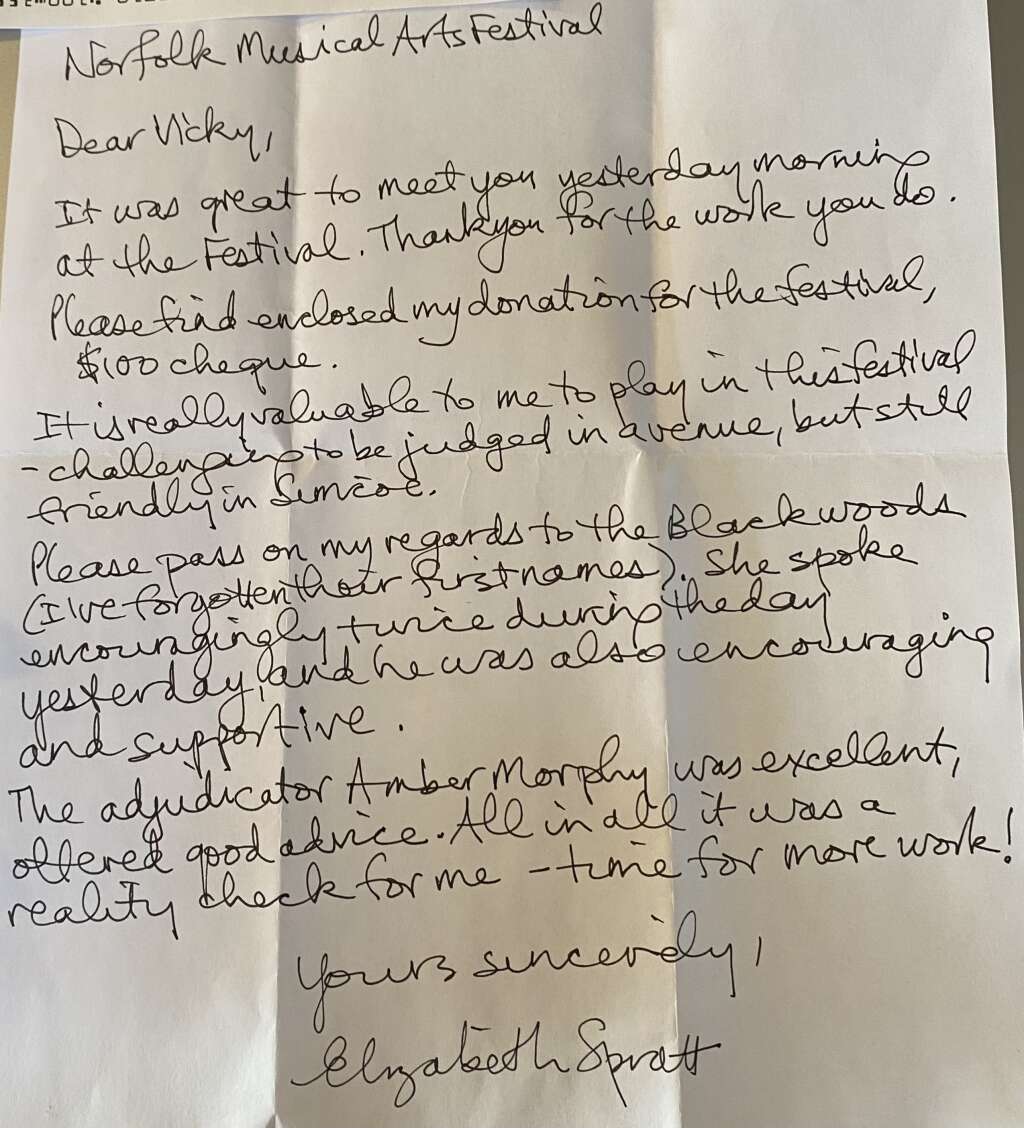 Norfolk Musical Arts Festival
Dear Vicky,
It was great to meet you yesterday morning
at the Festival. Thank you for the work you do.
Please find enclosed my donation for the festival,
$100 cheque.
It is really valuable to me to play in this festival
- challenging to be judged in a venue, but still
friendly in Simcoe.
Please pass on my regards to the Blackwoods
(I've forgotten their first names). She spoke
encouragingly twice during the day
yesterday, and he was also encouraging
and supportive.
The adjudicator Amber Morphy was excellent,
offered good advice. All in all it was a
reality check for me - time for more work!
Yours sincerely,
Elizabeth Spratt